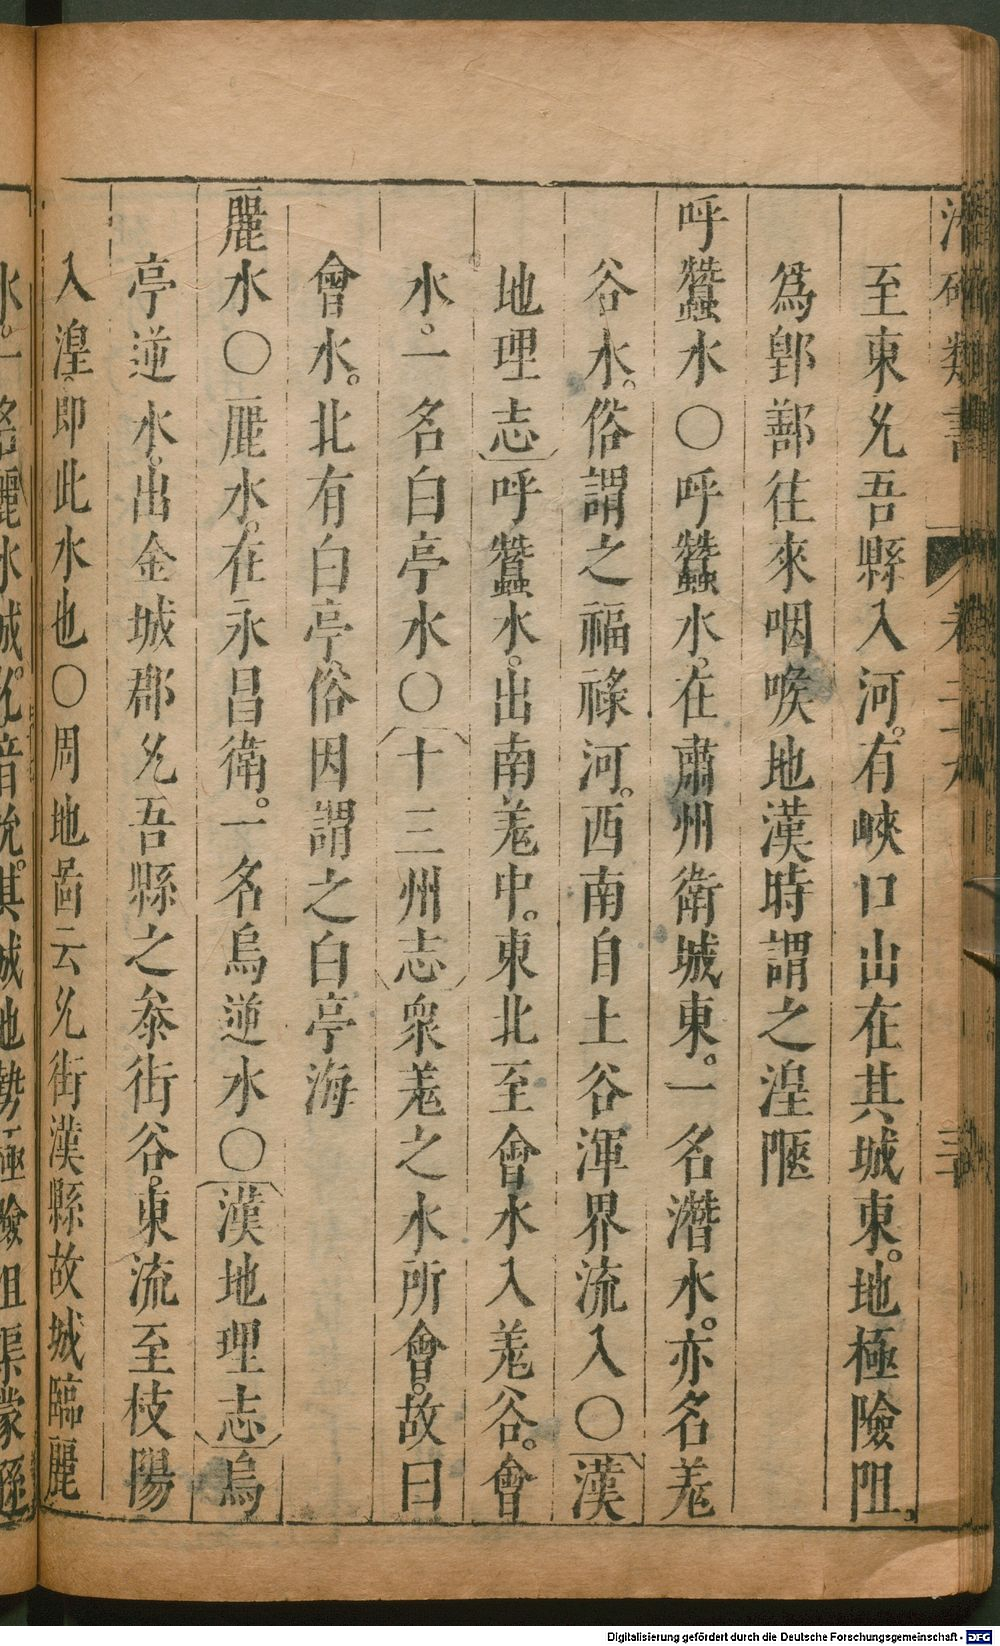 至東允吾縣入河。有峽口山在其城東。地極險阻。
爲鄯善往來咽喉地漢時謂之湟陿
呼蠶水〇呼蠶水。在肅州衛城東。一名潛水。亦名羗
谷水。俗謂之福祿河。西南自土谷渾界流入〇漢
地理志呼蠶水。出南羗中。東北至會水入羗谷。會
水。一名白亭水〇十三州志衆羗之水所會。故曰
會水。北有白亭俗因謂之白亭海
麗水〇麗水。在永昌衛。一名烏逆水〇漢地理志烏
亭逆水。出金城郡允吾縣之叅街谷。東流至枝陽
入湟。即此水也〇周地啚云允街漢縣故城臨麗
水。一名麗水城。允音沇。其城地勢極險阻渠蒙遜
Digitalisierung gefördert durch die Deutsche Forschungsgemeinschaft - DFG